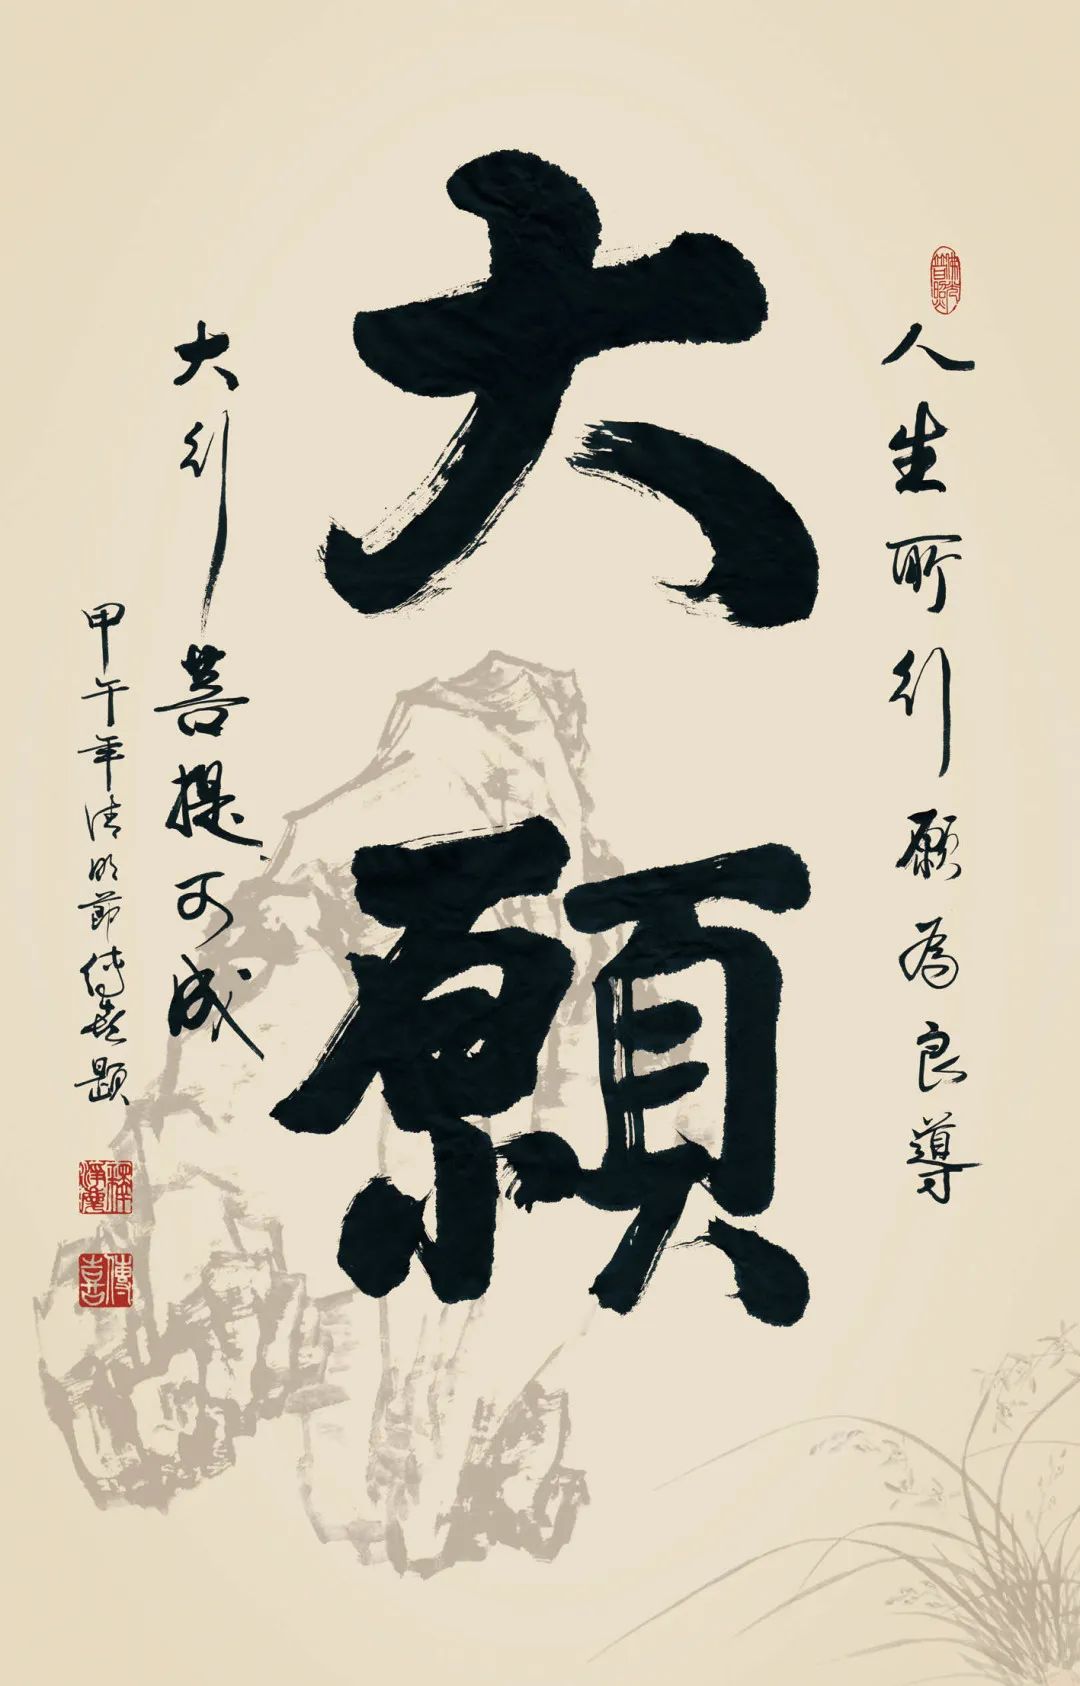 佛光普照
人生所行願為良導
大願
大行菩提可成
甲午年清明節傳喜題
傳喜